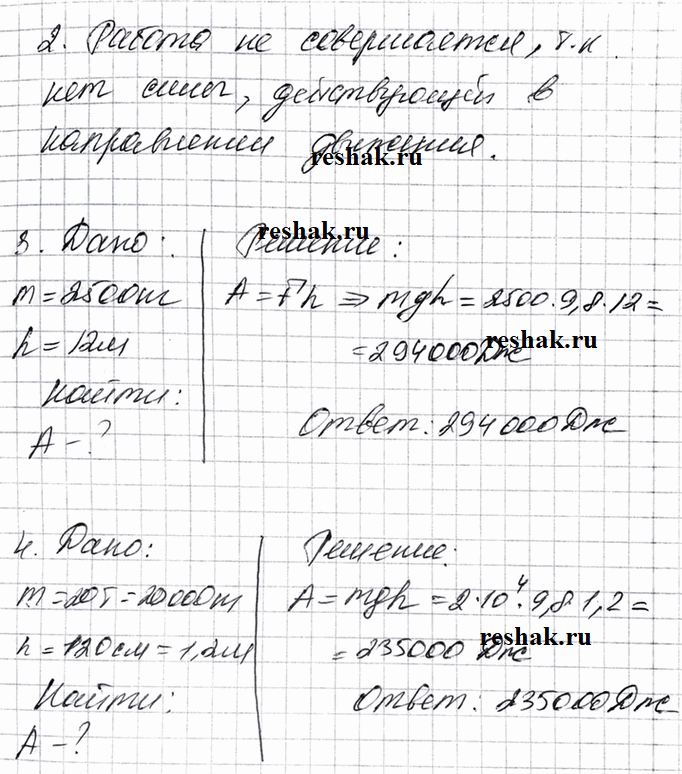 2. Работа не совершается, т.к.
нет силы, действующей в
направлении движения.
reshak.ru
3. Дано:
m = 2500кг
h = 12м
Найти:
A - ?
Решение:
reshak.ru
A = Fh ⇒ mgh = 2500·9,8·12 =
= 294000Дж
reshak.ru
Ответ: 294000Дж
4. Дано:
m = 20т = 20000кг
h = 120см = 1,2м
Найти:
A - ?
Решение:
A = mgh = 2·10⁴·9,8·1,2 =
= 235000 Дж
reshak.ru
Ответ: 235000Дж